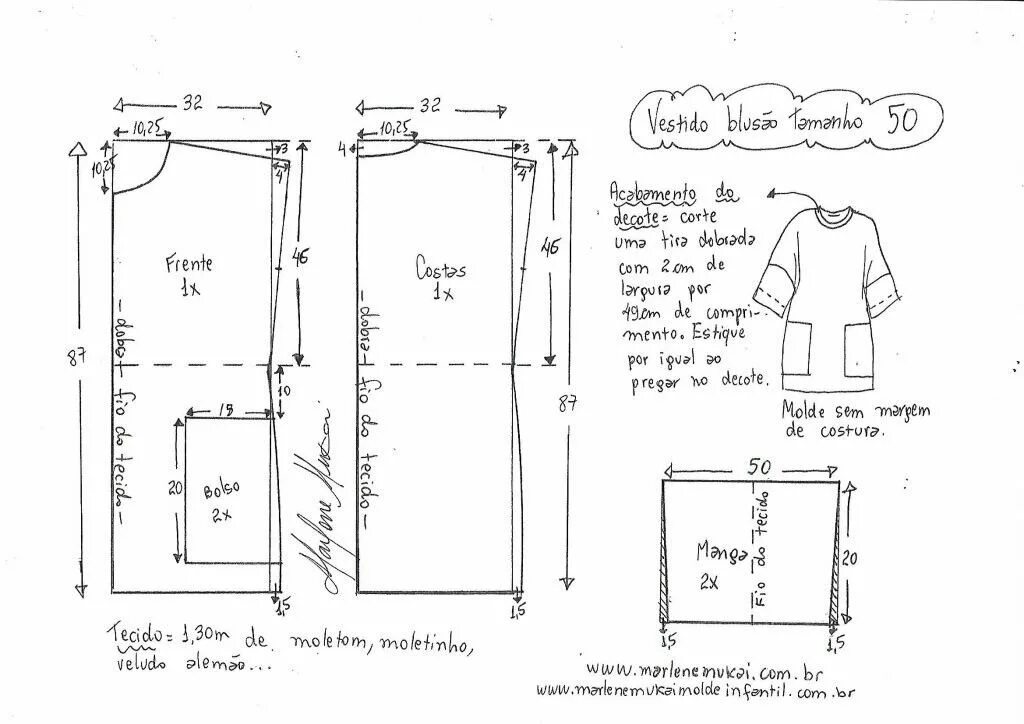 Vestido blusão tamanho 50
32
10,25
10,25
3
4
46
Frente
1x
87
dobra
fio do tecido
10
18
20
Bolso
2x
1,5
32
10,25
4
3
4
46
Costas
1x
dobra
fio do tecido
87
1,5
Marlene Mukai
Acabamento do
decote = corte
uma tira dobrada
com 2cm de
largura por
49cm de compri-
mento. Estique
por igual ao
pregar no decote.
Molde sem margem
de costura.
50
Manga
2x
Fio do tecido
20
1,5
1,5
Tecido = 1,30m de moletom, moletinho,
veludo alemão...
www.marlenemukai.com.br
www.marlenemukaimoldeinfantil.com.br